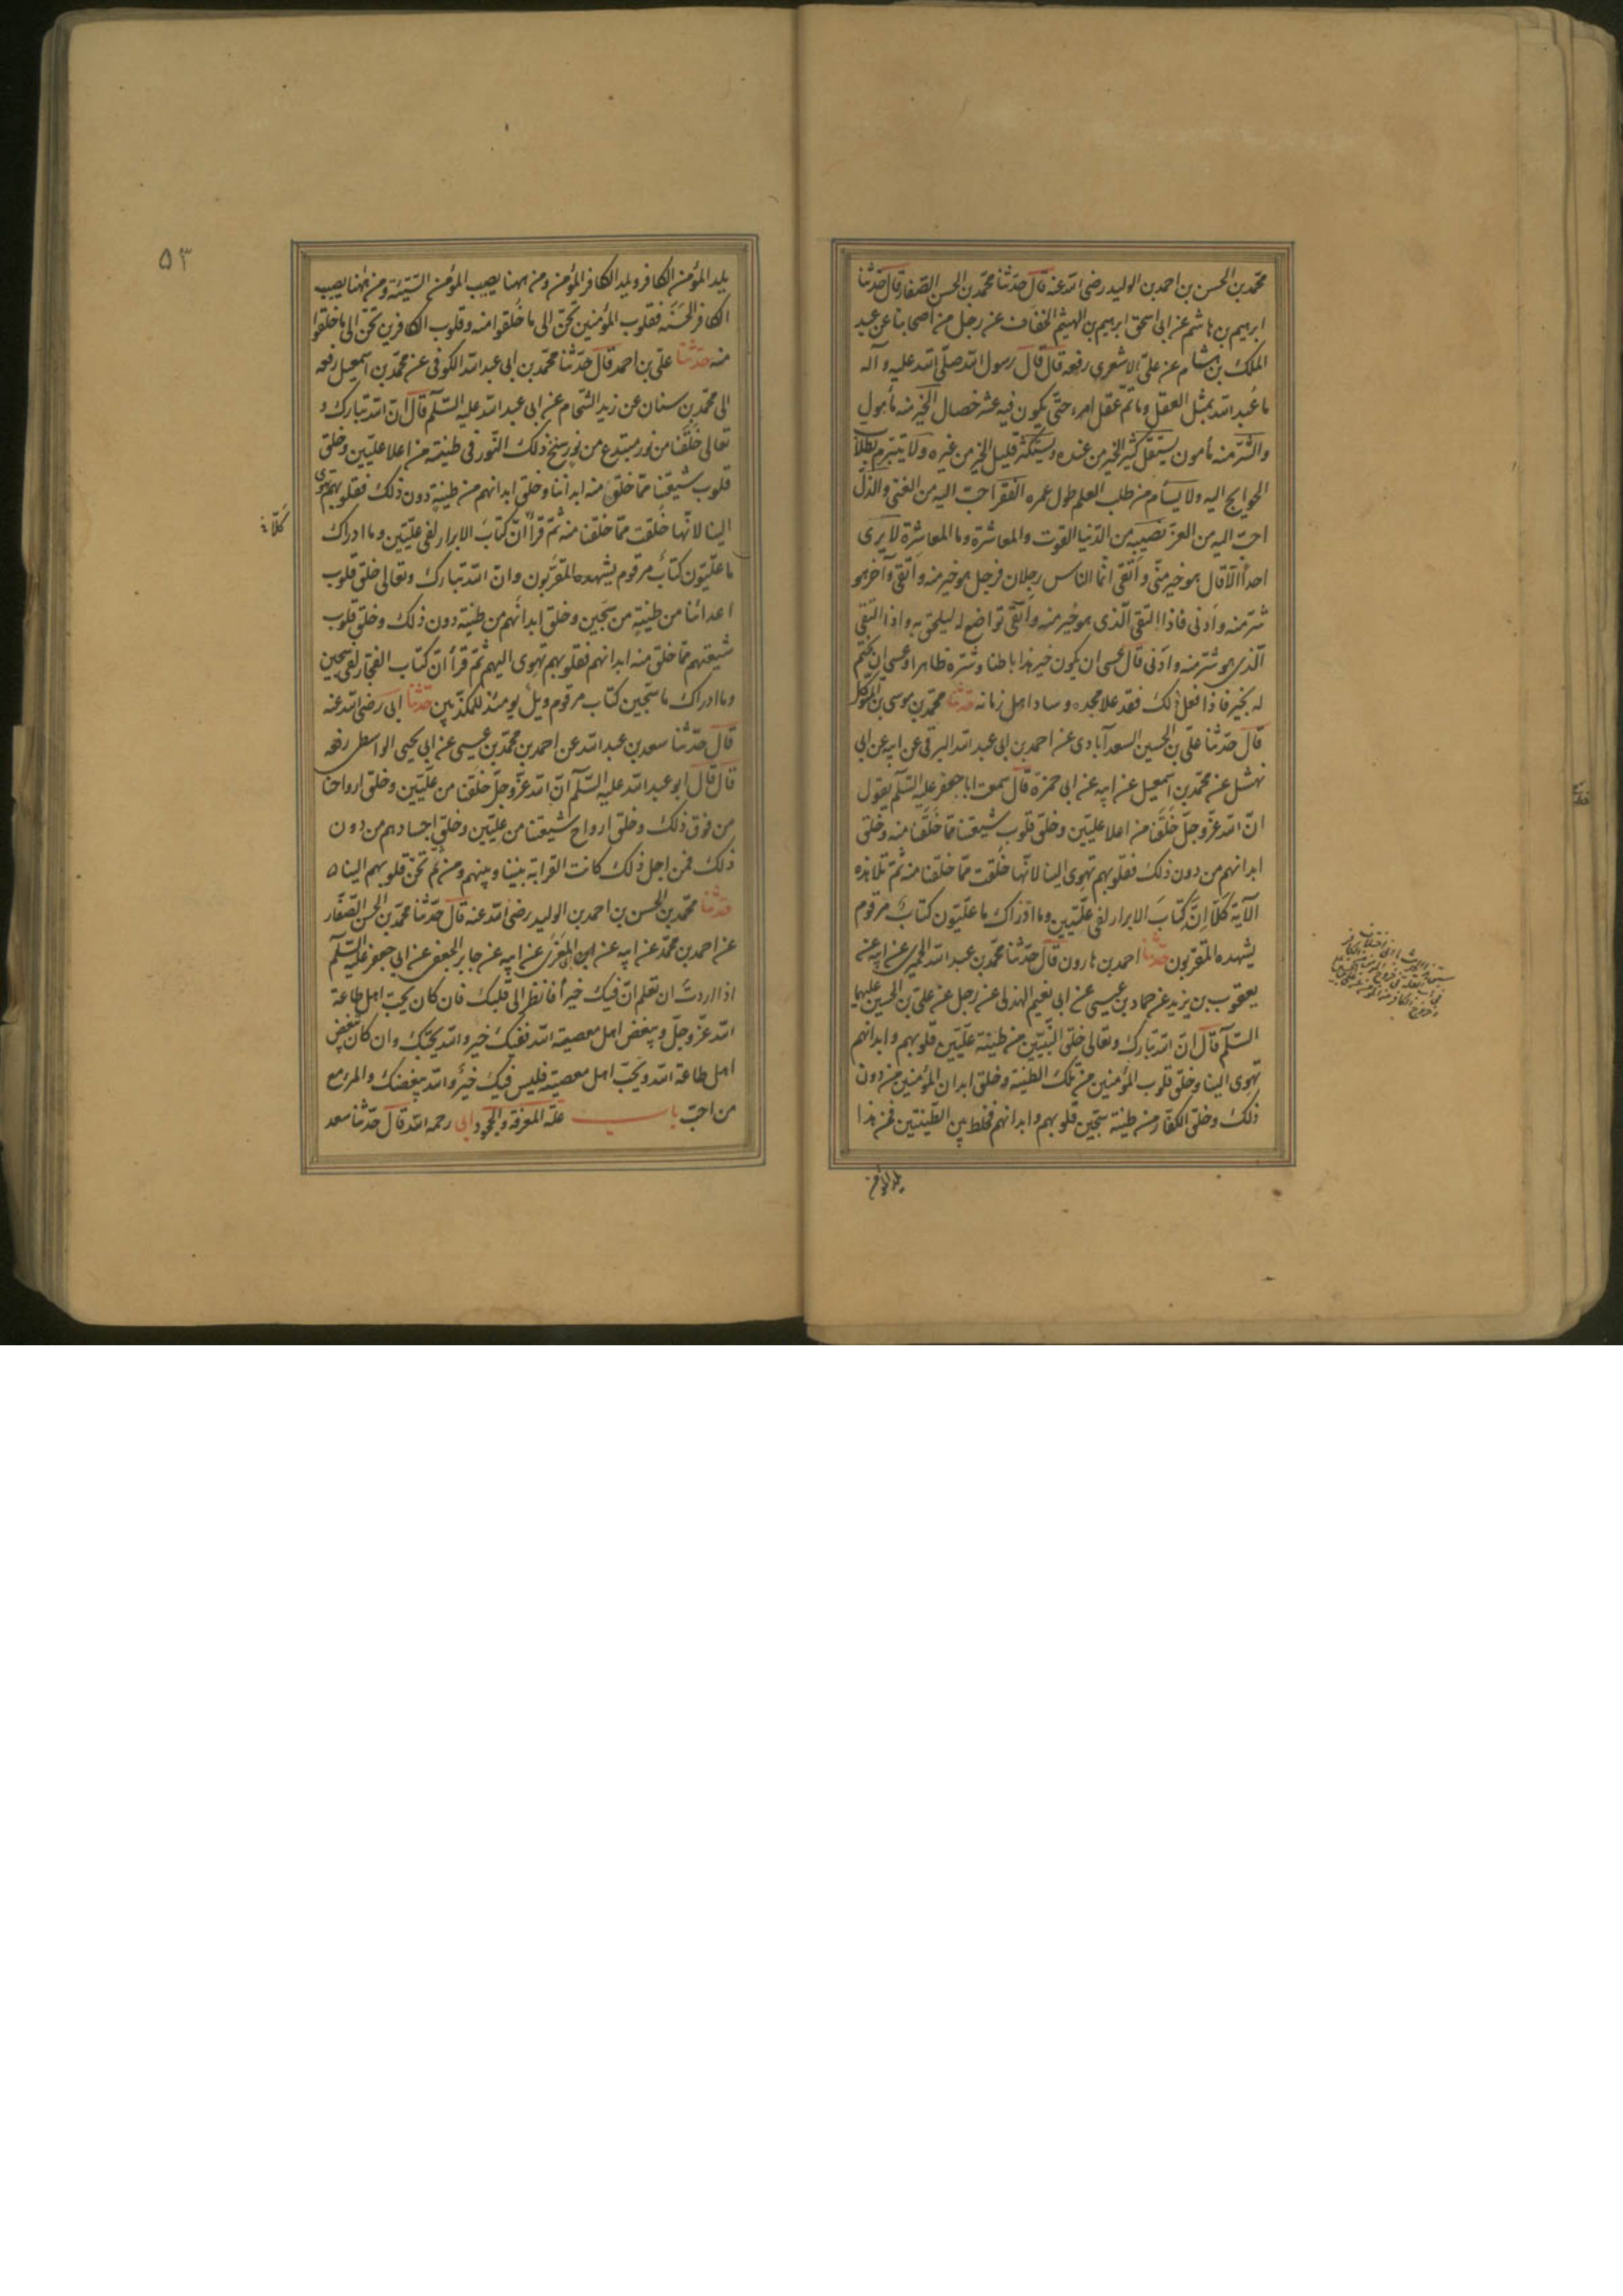 محمد بن الحسن بن احمد بن الوليد رضى الله عنه قال حدثنا محمد بن الحسن الصفار قال حدثنا
ابرهيم بن هاشم عن ابى اسحق ابرهيم بن الهيثم الخفاف عن رجل من اصحابنا عن عبد
الملك بن هشام عن على الاشعرى رفعه قال قال رسول الله صلى الله عليه و آله
ما عُبد الله بمثل العقل وما تم عقل امرء حتى يكون فيه عشر خصال الخير منه مأمول
والشر منه مأمون يستقل كثير الخير من عنده ويستكثر قليل الخير من غيره ولا يتبرم بطلاب
الحوايج اليه ولا يسأم من طلب العلم طول عمره الفقر احب اليه من الغنى والذل
احب اليه من العز نصيبه من الدنيا القوت والعاشرة وما العاشرة لا يرى
احداً الا قال هو خير منى و اتقى انما الناس رجلان فرجل هو خير منه و اتقى و آخر هو
شر منه و ادنى فاذا التقى الذى هو خير منه و اتقى تواضع له ليلحق به و اذا التقى
الذى هو شر منه و ادنى قال عسى ان يكون خير هذا باطنا و شره ظاهرا و عسى ان يختم
له بخير فاذا فعل ذلك فقد علا مجده و ساد اهل زمانه حدثنا محمد بن موسى بن المتوكل
قال حدثنا على بن الحسين السعدآبادى عن احمد بن ابى عبد الله البرقى عن ابيه عن ابى
نهشل عن محمد بن اسمعيل عن ابيه عن ابى حمزة قال سمعت ابا جعفر عليه السلم يقول
ان الله عز وجل خلقنا من اعلا عليين و خلق قلوب شيعتنا مما خلقنا منه و خلق
ابدانهم من دون ذلك فقلوبهم تهوى الينا لانها خُلقت مما خلقنا منه ثم تلا هذه
الآية كلا اِنَّ كتابَ الابرار لفى عليين وما ادراك ما عليون كتابٌ مرقوم
يشهده المقربون حدثنا احمد بن هارون قال حدثنا محمد بن عبد الله الحميرى عن ابيه عن
يعقوب بن يزيد عن حماد بن عيسى عن ابى نعيم الهذلى عن رجل عن على بن الحسين عليهما
السلم قال ان الله تبارك وتعالى خلق النبيين من طينة عليين قلوبهم و ابدانهم
تهوى الينا وخلق قلوب المؤمنين من تلك الطينة و خلق ابدان المؤمنين من دون
ذلك و خلق الكفار من طينة سجين قلوبهم و ابدانهم فخلط بين الطينتين فمن هذا
يلد المؤمن
٥٣
يلد المؤمن الكافر ويلد الكافر المؤمن ومن ههنا يصيب المؤمن السيئة ومن ههنا يصيب
الكافر الحسنه فقلوب المؤمنين تحن الى ما خلقوا منه و قلوب الكافرين تحن الى ما خلقوا
منه حدثنا على بن احمد قال حدثنا محمد بن ابى عبد الله الكوفى عن محمد بن اسمعيل رفعه
الى محمد بن سنان عن زيد الشحام عن ابى عبد الله عليه السلم قال ان الله تبارك و
تعالى خلقنا من نور مبتدع من نور سنخ ذلك النور فى طينة من اعلا عليين وخلق
قلوب شيعتنا مما خلق منه ابداننا و خلق ابدانهم من طينة دون ذلك فقلوبهم تهوى
الينا لانها خُلقت مما خلقنا منه ثم قرأ ان كتابَ الابرار لفى عليين وما ادراك
كلا
ما عليون كتابٌ مرقوم يشهده المقربون وان الله تبارك وتعالى خلق قلوب
اعدائنا من طينة من سجين و خلق ابدانهم من طينة دون ذلك و خلق قلوب
شيعتهم مما خلق منه ابدانهم فقلوبهم تهوى اليهم ثم قرأ ان كتاب الفجار لفى سجين
وما ادراك ما سجين كتاب مرقوم ويلٌ يومئذ للمكذبين حدثنا ابى رضى الله عنه
قال حدثنا سعد بن عبد الله عن احمد بن محمد بن عيسى عن ابى يحيى الواسطى رفعه
قال قال ابو عبد الله عليه السلم ان الله عز وجل خلقنا من عليين و خلق ارواحنا
من فوق ذلك و خلق ارواح شيعتنا من عليين و خلق اجسادهم من دون
ذلك فمن اجل ذلك كانت القرابة بيننا و بينهم ومن ثم تحن قلوبهم الينا ٥
حدثنا محمد بن الحسن بن احمد بن الوليد رضى الله عنه قال حدثنا محمد بن الحسن الصفار
عن احمد بن محمد عن ابيه عن ابن المغرى عن ابيه عن جابر الجعفى عن ابى جعفر عليه السلم
اذا اردتَ ان تعلم ان فيك خيراً فانظر الى قلبك فان كان يحب اهل طاعة
الله عز وجل و يبغض اهل معصية الله ففيك خير و الله يحبك و ان كان يبغض
اهل طاعة الله و يحب اهل معصيته فليس فيك خير و الله يبغضك و المرء مع
من احب باب علة المعرفة والجحود ابى رحمه الله قال حدثنا سعد